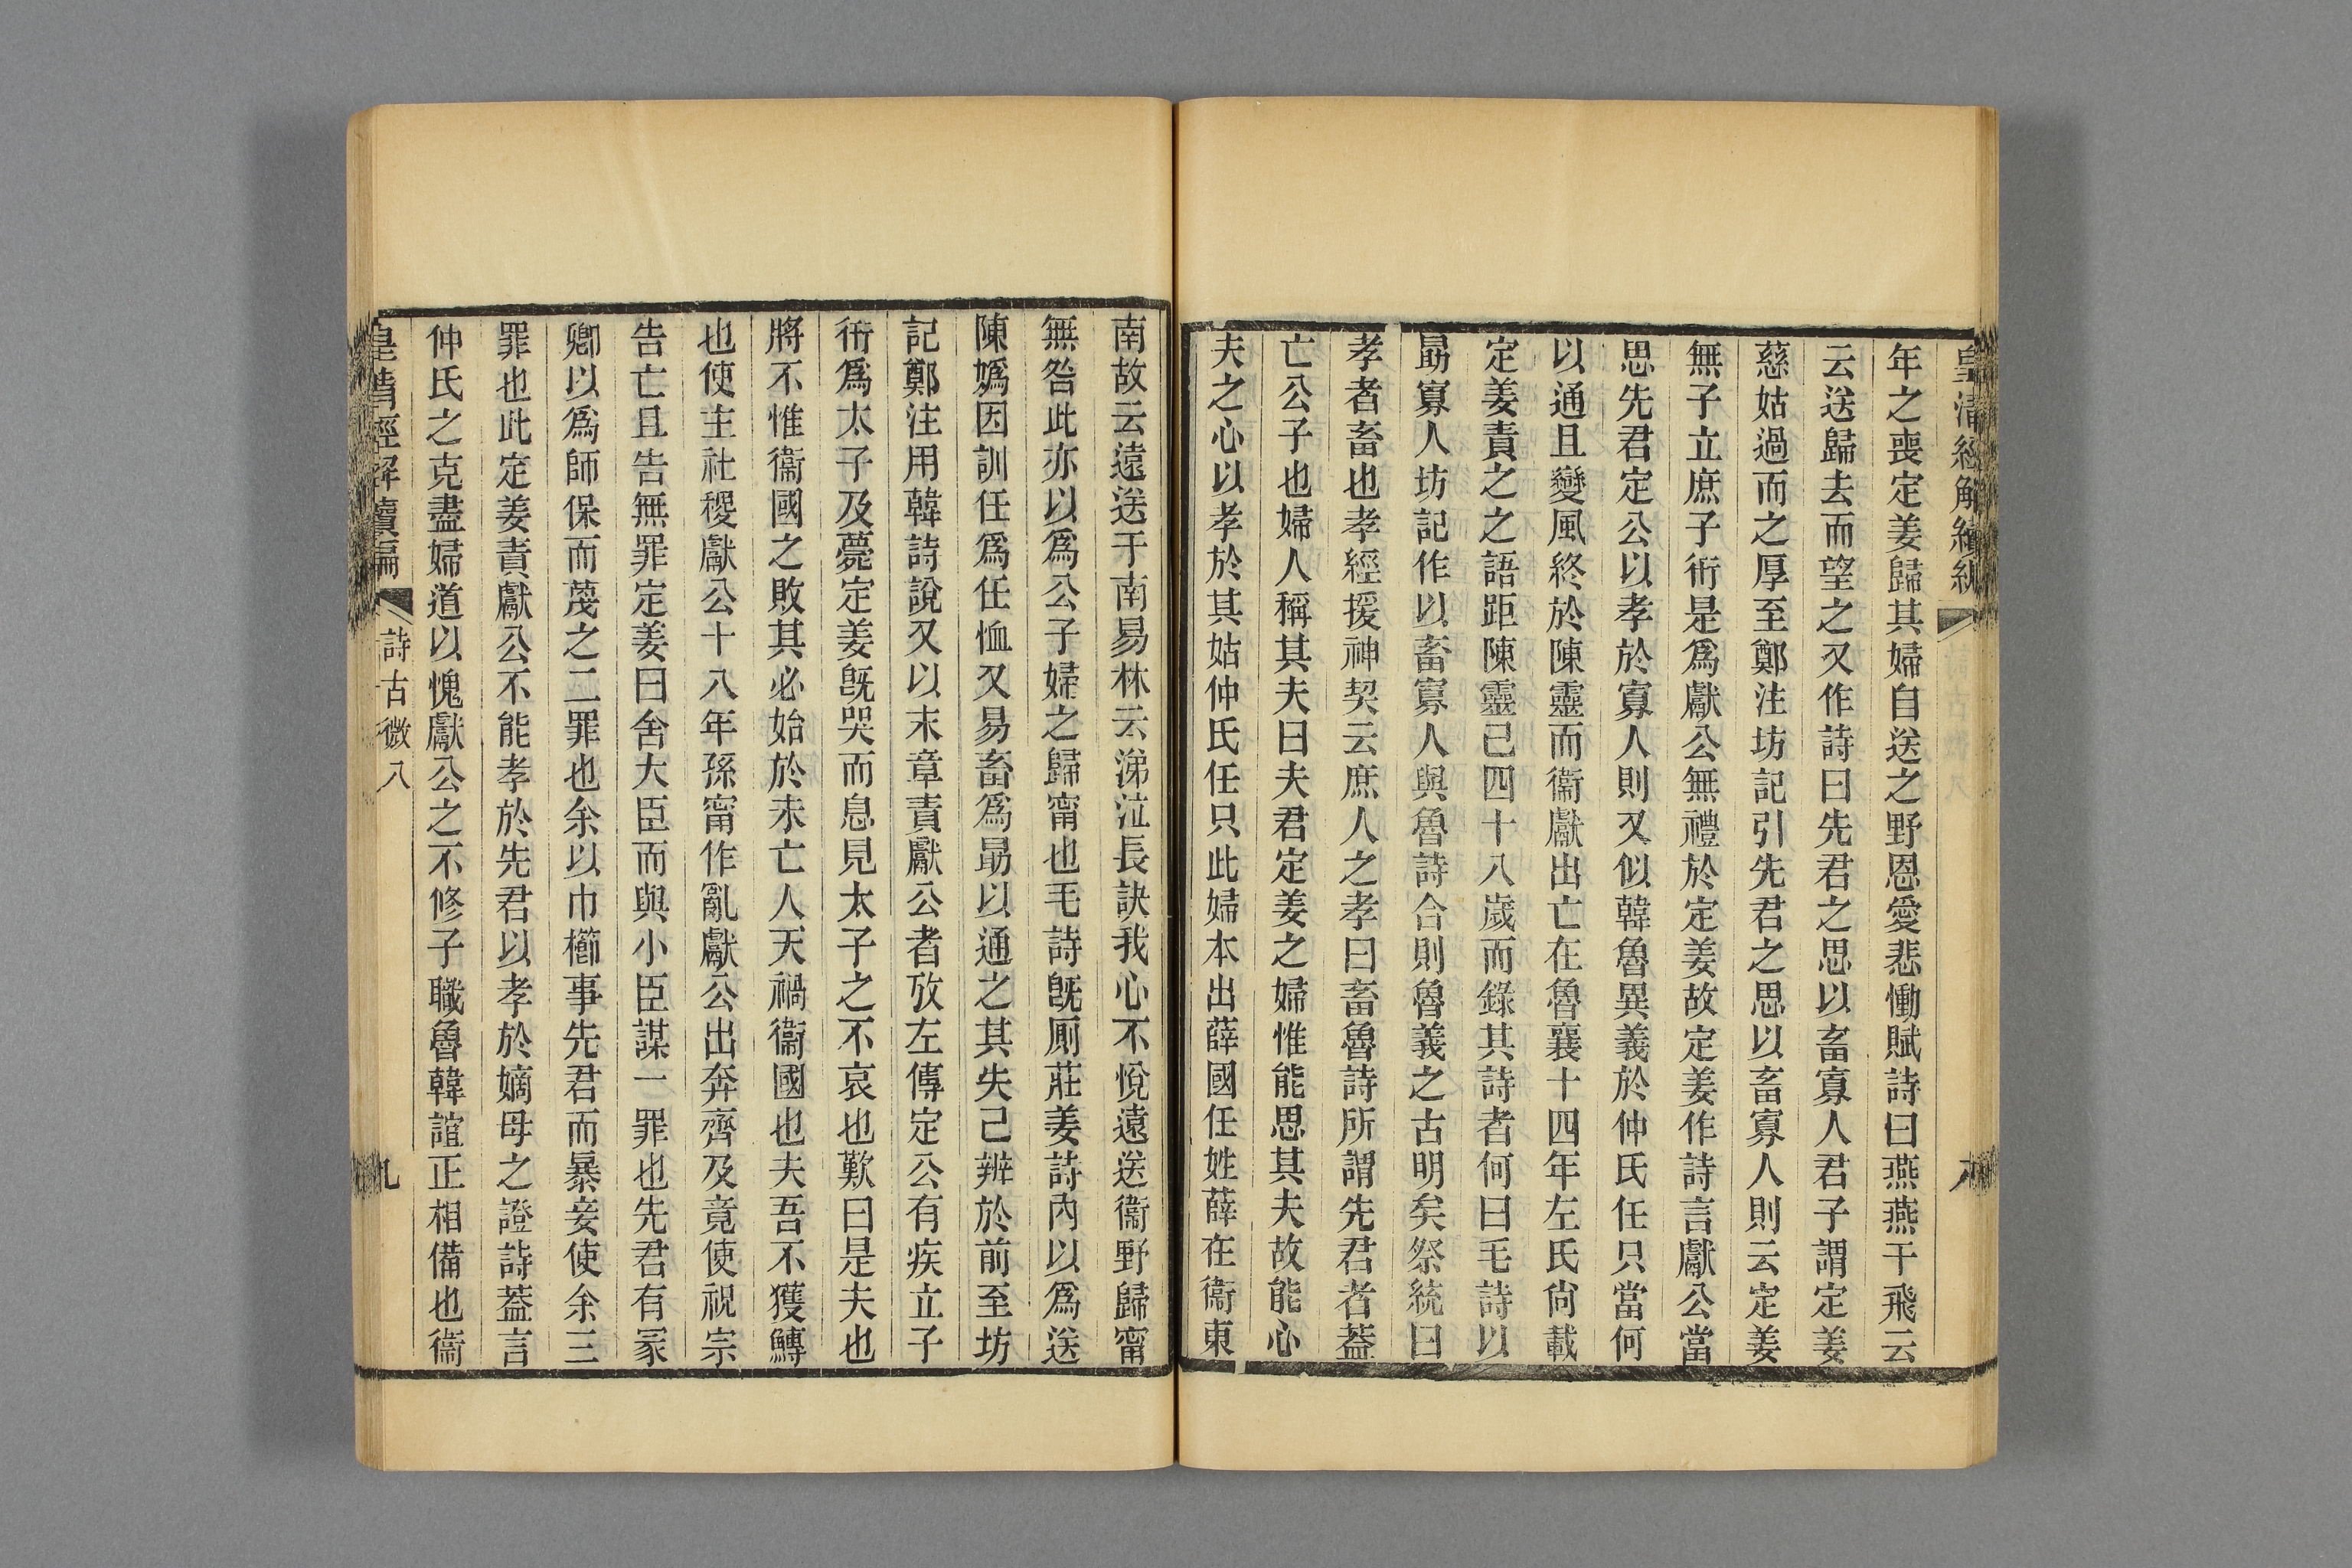 皇清經解續編
年之喪定姜歸其婦自送之野恩愛悲慟賦詩曰燕燕于飛云
云送歸去而望之又作詩曰先君之思以畜寡人君子謂定姜
慈姑過而之厚至鄭注坊記引先君之思以畜寡人則云定姜
無子立庶子衎是爲獻公無禮於定姜故定姜作詩言獻公當
思先君定公以孝於寡人則又似韓魯異義於仲氏任只當何
以通且變風終於陳靈而衞獻出亡在魯襄十四年左氏尙載
定姜責之之語距陳靈已四十八歲而錄其詩者何曰毛詩以
勗寡人坊記作以畜寡人與魯詩合則魯義之古明矣祭統曰
孝者畜也孝經援神契云庶人之孝曰畜魯詩所謂先君者葢
亡公子也婦人稱其夫曰夫君定姜之婦惟能思其夫故能心
夫之心以孝於其姑仲氏任只此婦本出薛國任姓薛在衞東
南故云遠送于南易林云涕泣長訣我心不悅遠送衞野歸甯
無咎此亦以爲公子婦之歸甯也毛詩旣厠莊姜詩內以爲送
陳嬀因訓任爲任恤又易畜爲勗以通之其失己辨於前至坊
記鄭注用韓詩說又以末章責獻公者攷左傳定公有疾立子
衎爲太子及薨定姜旣哭而息見太子之不哀也歎曰是夫也
將不惟衞國之敗其必始於未亡人天禍衞國也夫吾不獲鱄
也使主社稷獻公十八年孫甯作亂獻公出奔齊及竟使祝宗
告亡且告無罪定姜曰舍大臣而與小臣謀一罪也先君有冢
卿以爲師保而蔑之二罪也余以巾櫛事先君而暴妾使余三
罪也此定姜責獻公不能孝於先君以孝於嫡母之證詩葢言
仲氏之克盡婦道以愧獻公之不修子職魯韓誼正相備也衞
皇清經解續編
詩古微八
九